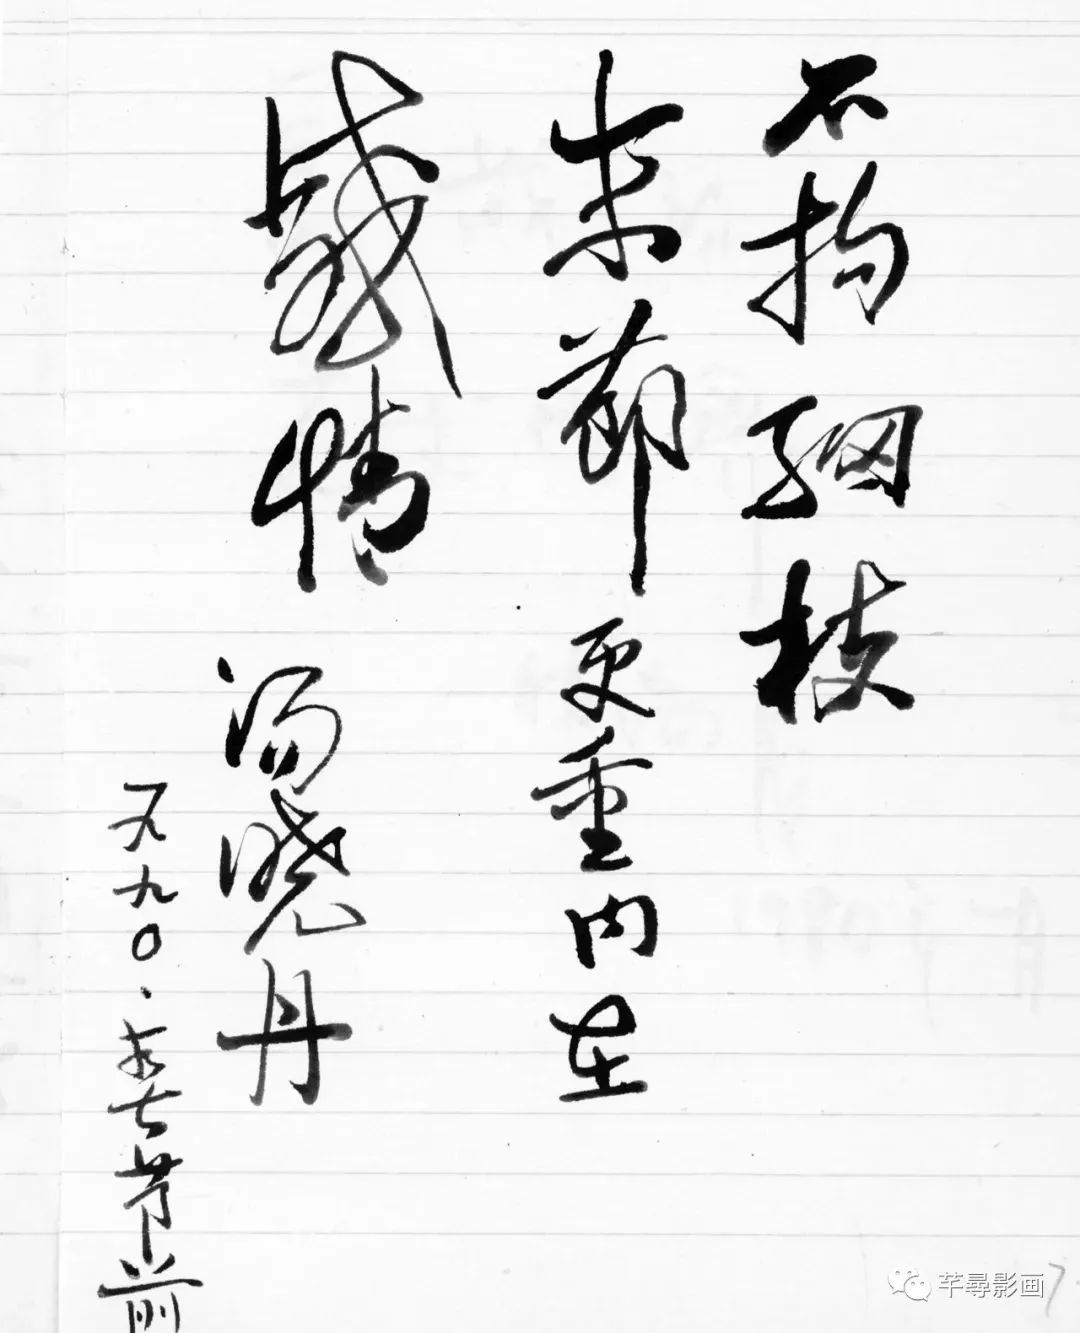 不拘細枝
末節更重内在
感情
汤晓丹
一九九0.节前
芊尋影画
7